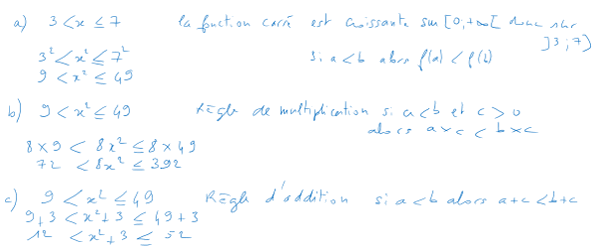 a) 3 < x ≤ 7 la fonction carré est croissante sur [0,+∞[ donc sur
]3;7]
3² < x² ≤ 7² si a < b alors f(a) < f(b)
9 < x² ≤ 49
b) 9 < x² ≤ 49 Règle de multiplication si a < b et c > 0
alors a×c < b×c
8 × 9 < 8x² ≤ 8 × 49
72 < 8x² ≤ 392
c) 9 < x² ≤ 49 Règle d'addition si a < b alors a+c < b+c
9+3 < x²+3 ≤ 49+3
12 < x²+3 ≤ 52